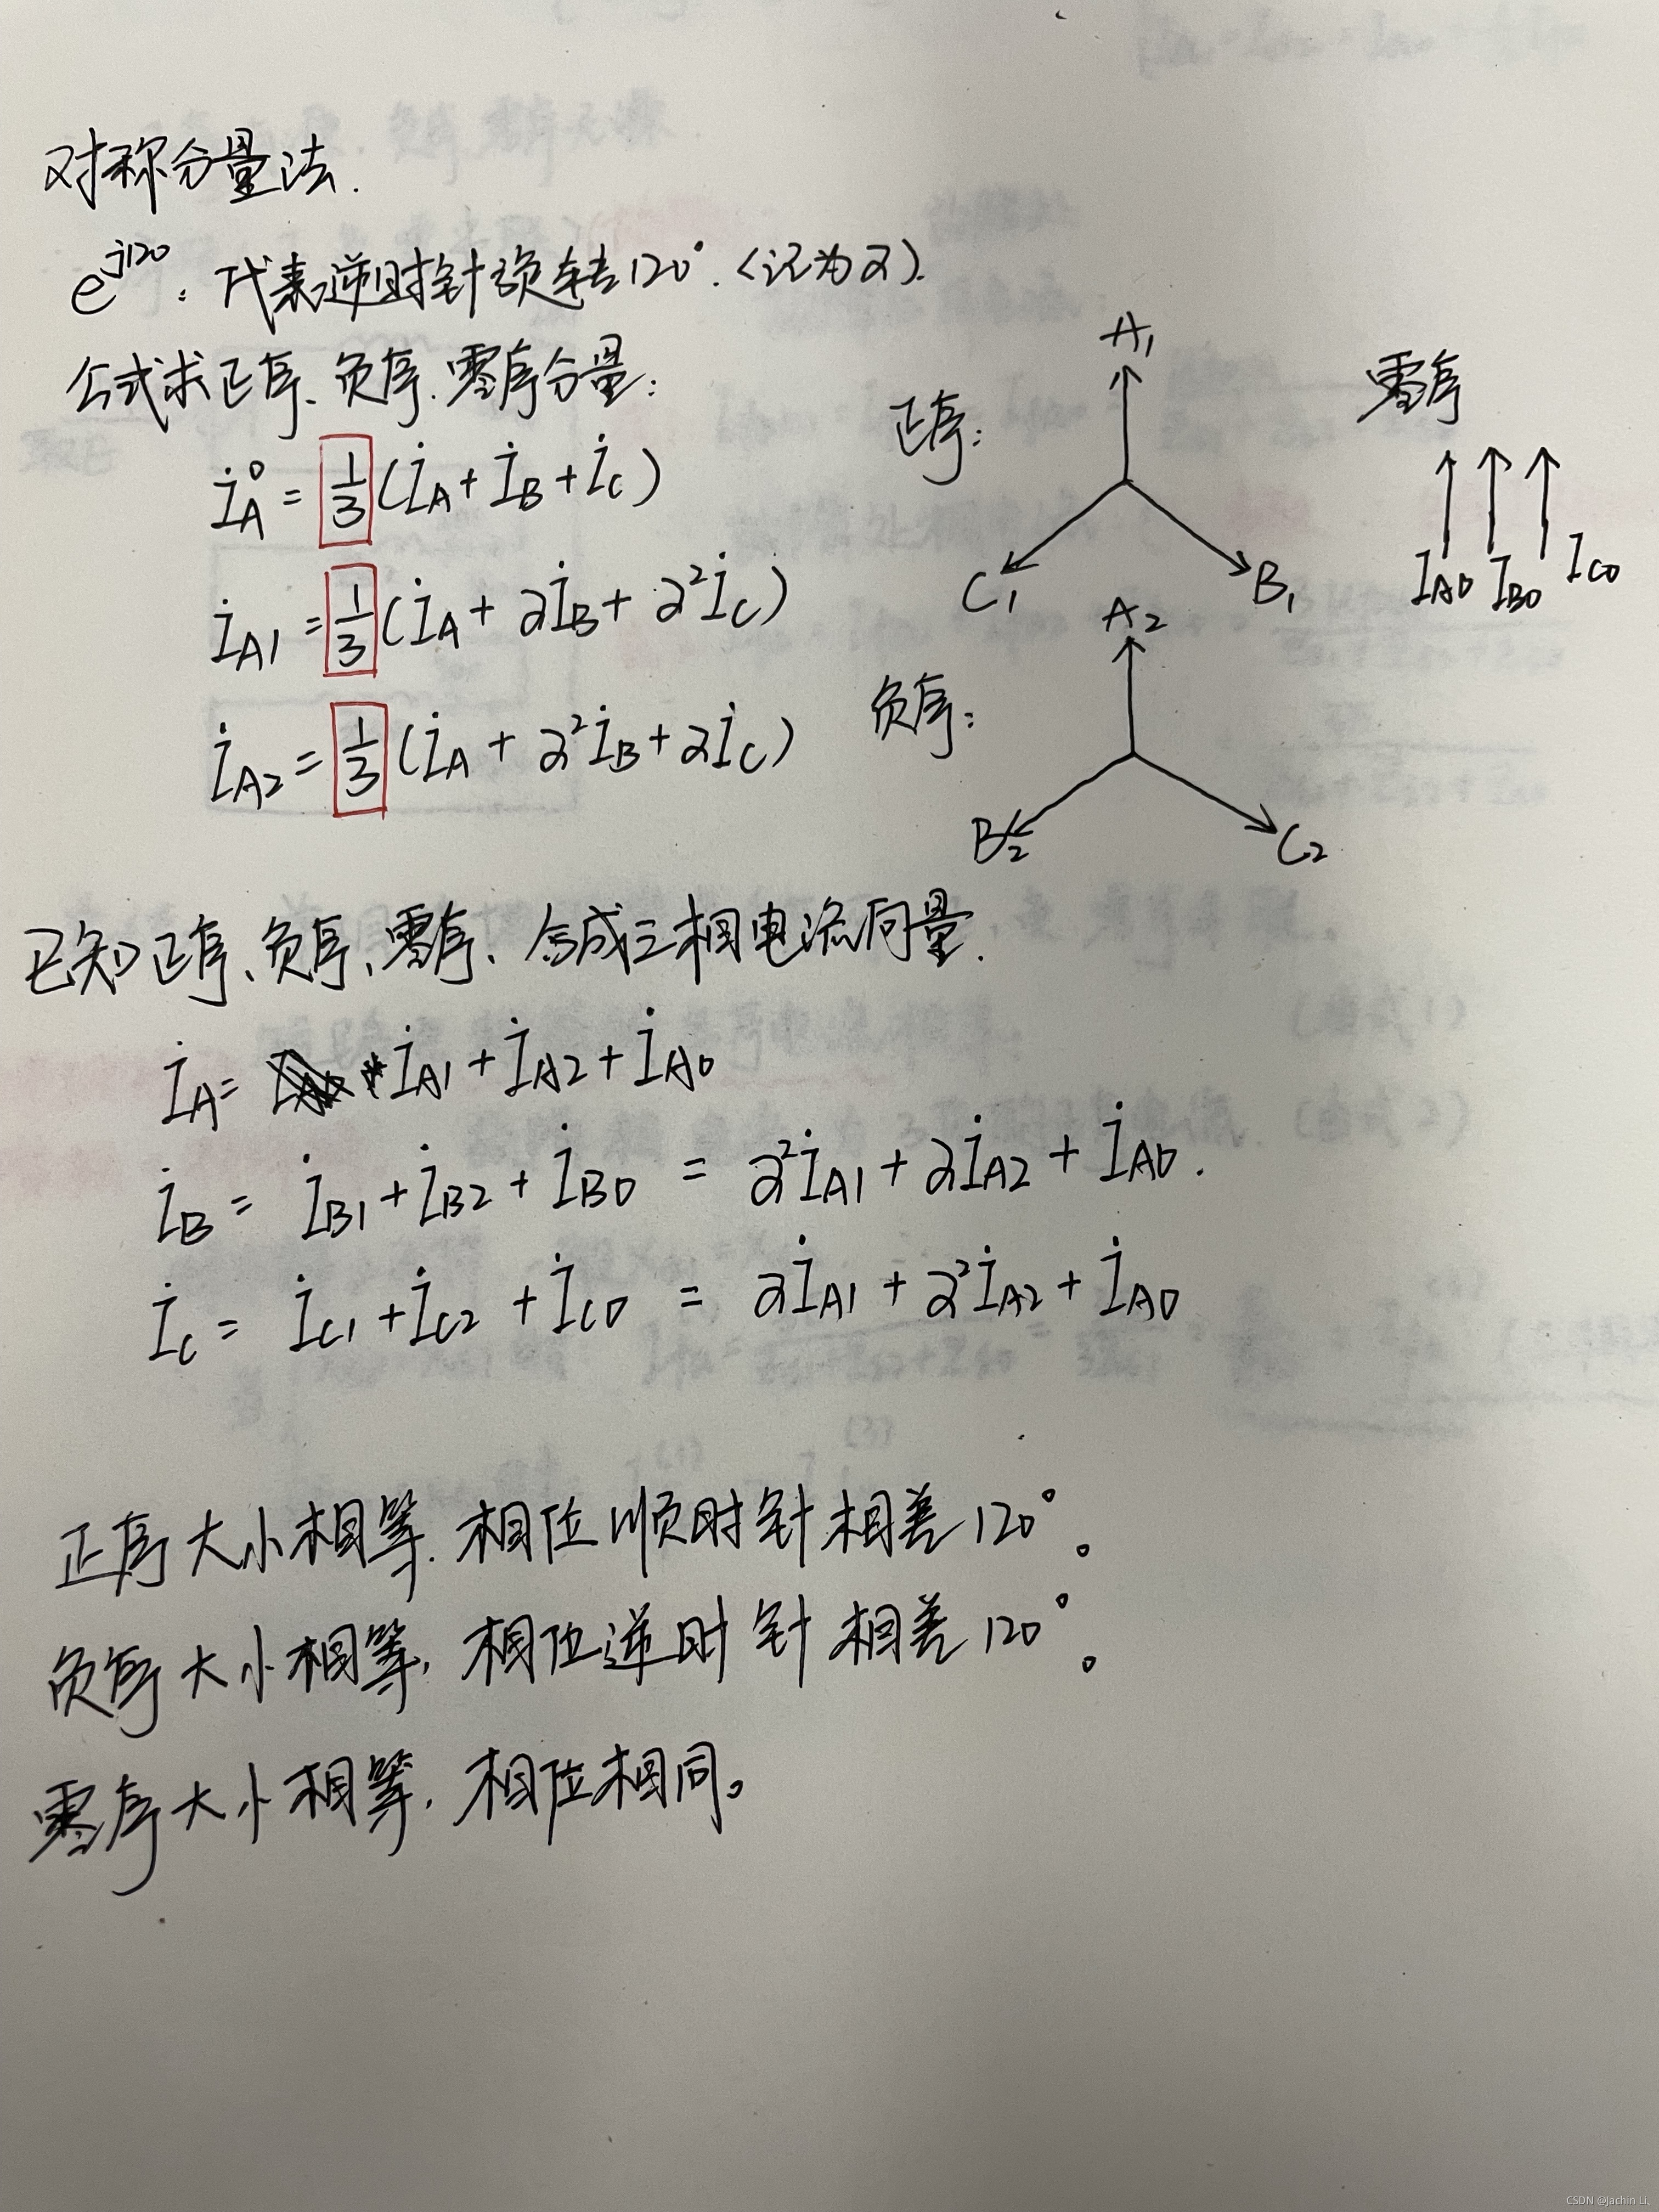 对称分量法.
e^j120: 代表逆时针旋转120°.(记为α).
公式求正序、负序.零序分量:
İA⁰ = 1/3 (İA + İB + İC)
İA1 = 1/3 (İA + αİB + α²İC)
İA2 = 1/3 (İA + α²İB + αİC)
正序:
A1
C1
B1
零序
IA0 IB0 IC0
负序:
A2
B2
C2
已知正序、负序、零序、合成三相电流向量.
İA = İA1 + İA2 + İA0
İB = İB1 + İB2 + İB0 = α²İA1 + αİA2 + İA0.
İC = İC1 + İC2 + İC0 = αİA1 + α²İA2 + İA0
正序大小相等.相位顺时针相差120°。
负序大小相等,相位逆时针相差120°。
零序大小相等,相位相同。
CSDN @Jachin Li.